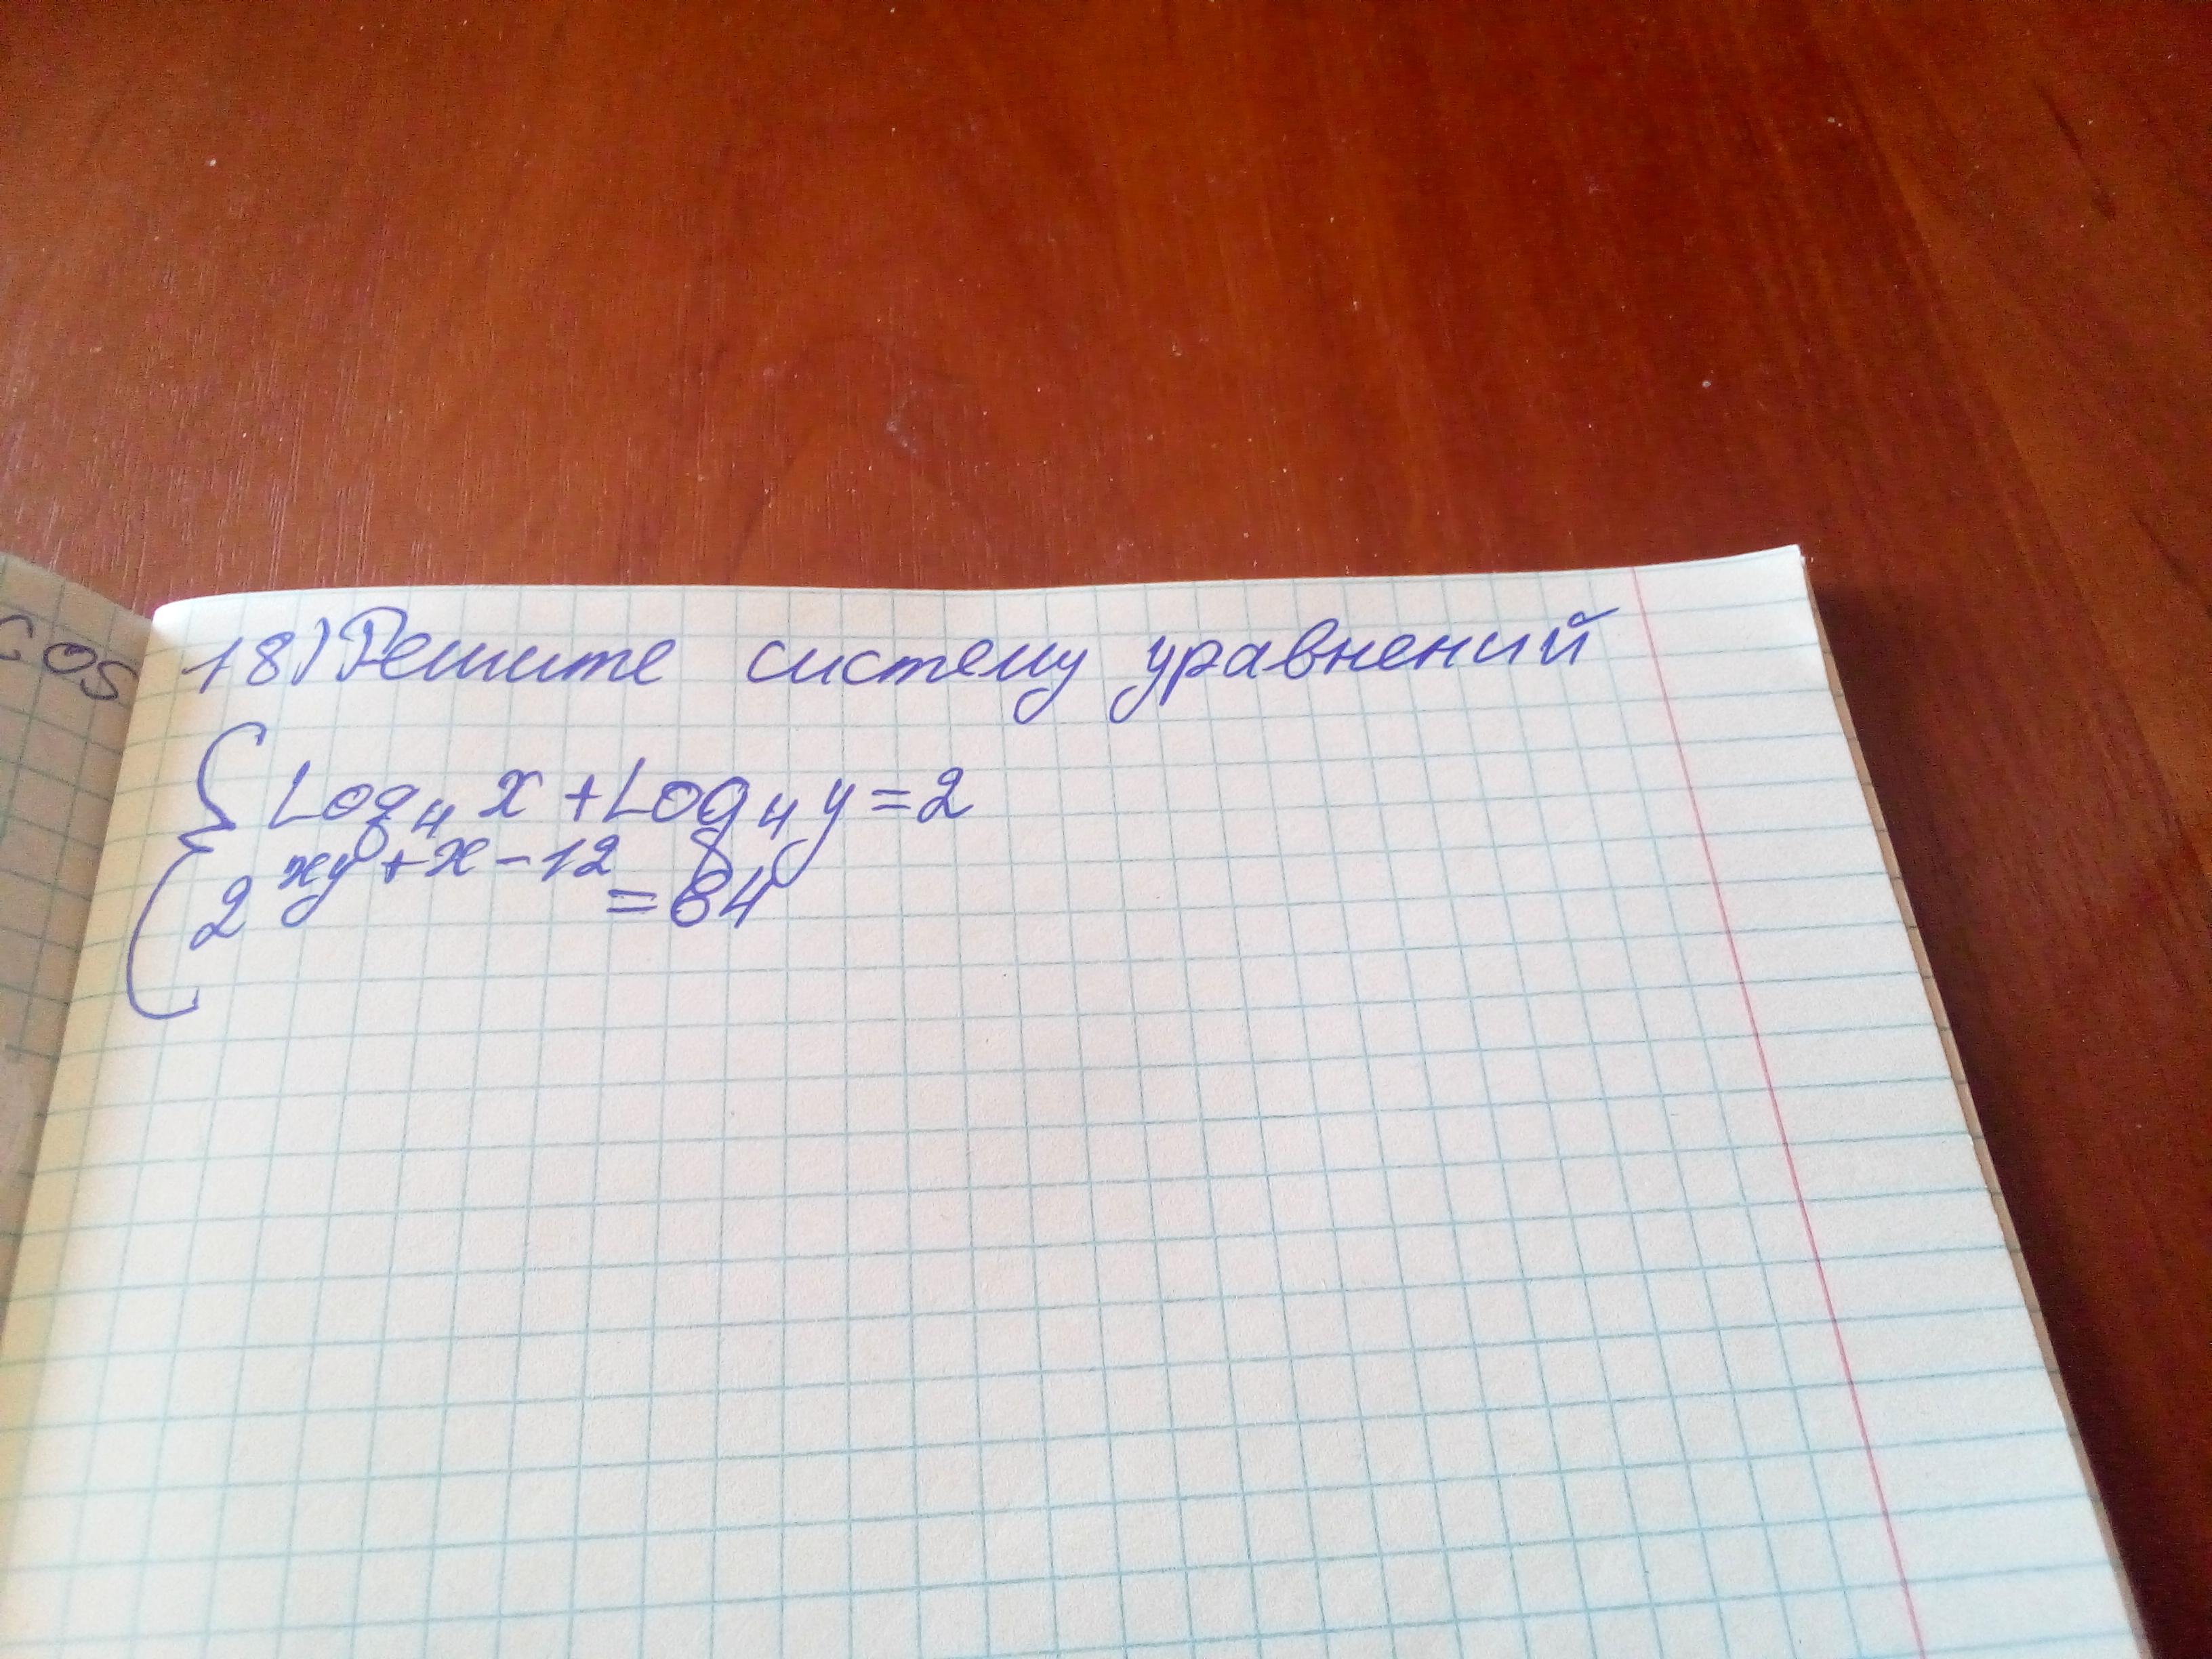 cos
18) Решите систему уравнений
{ Log₄ x + Log₄ y = 2
2^{xy + x - 12} = 64